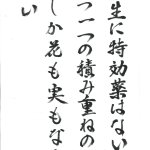 生に特効薬はない
つ一つの積み重ねの
しか花も実もな
い